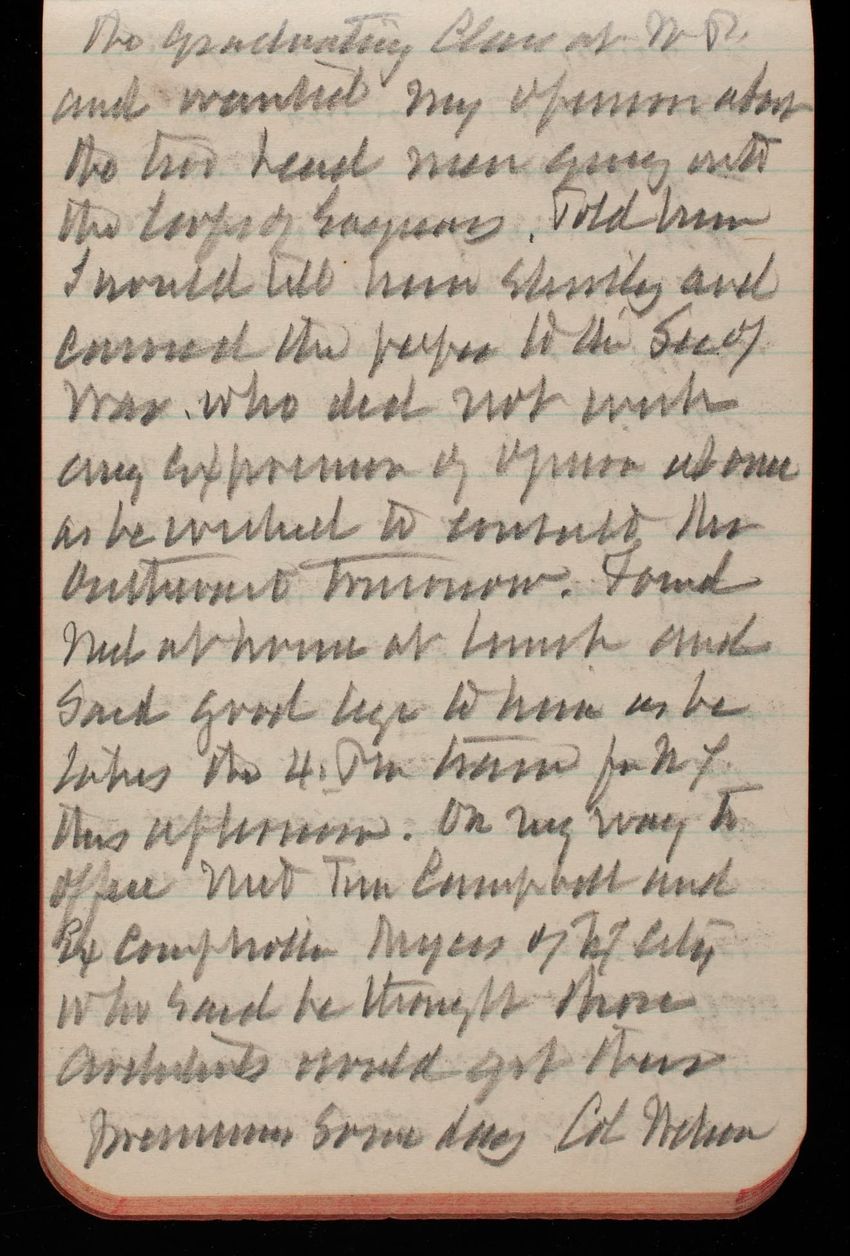 the graduating Class at W.P.
and wanted my opinion about
the two head men going into
the Corps of Engineers. Told him
I would tell him shortly and
carried the paper to the Sec of
War. who did not wish
any expression of opinion at once
as he wished to consult the
tomorrow. Found
Ned at home at lunch and
Said good bye to him as he
takes the 4. Pm train for NY.
this afternoon. On my way to
office met Tim Campbell and
Ex Comptroller Myers of NY City
who said he thought those
architects would get their
premiums some day Col Wilson